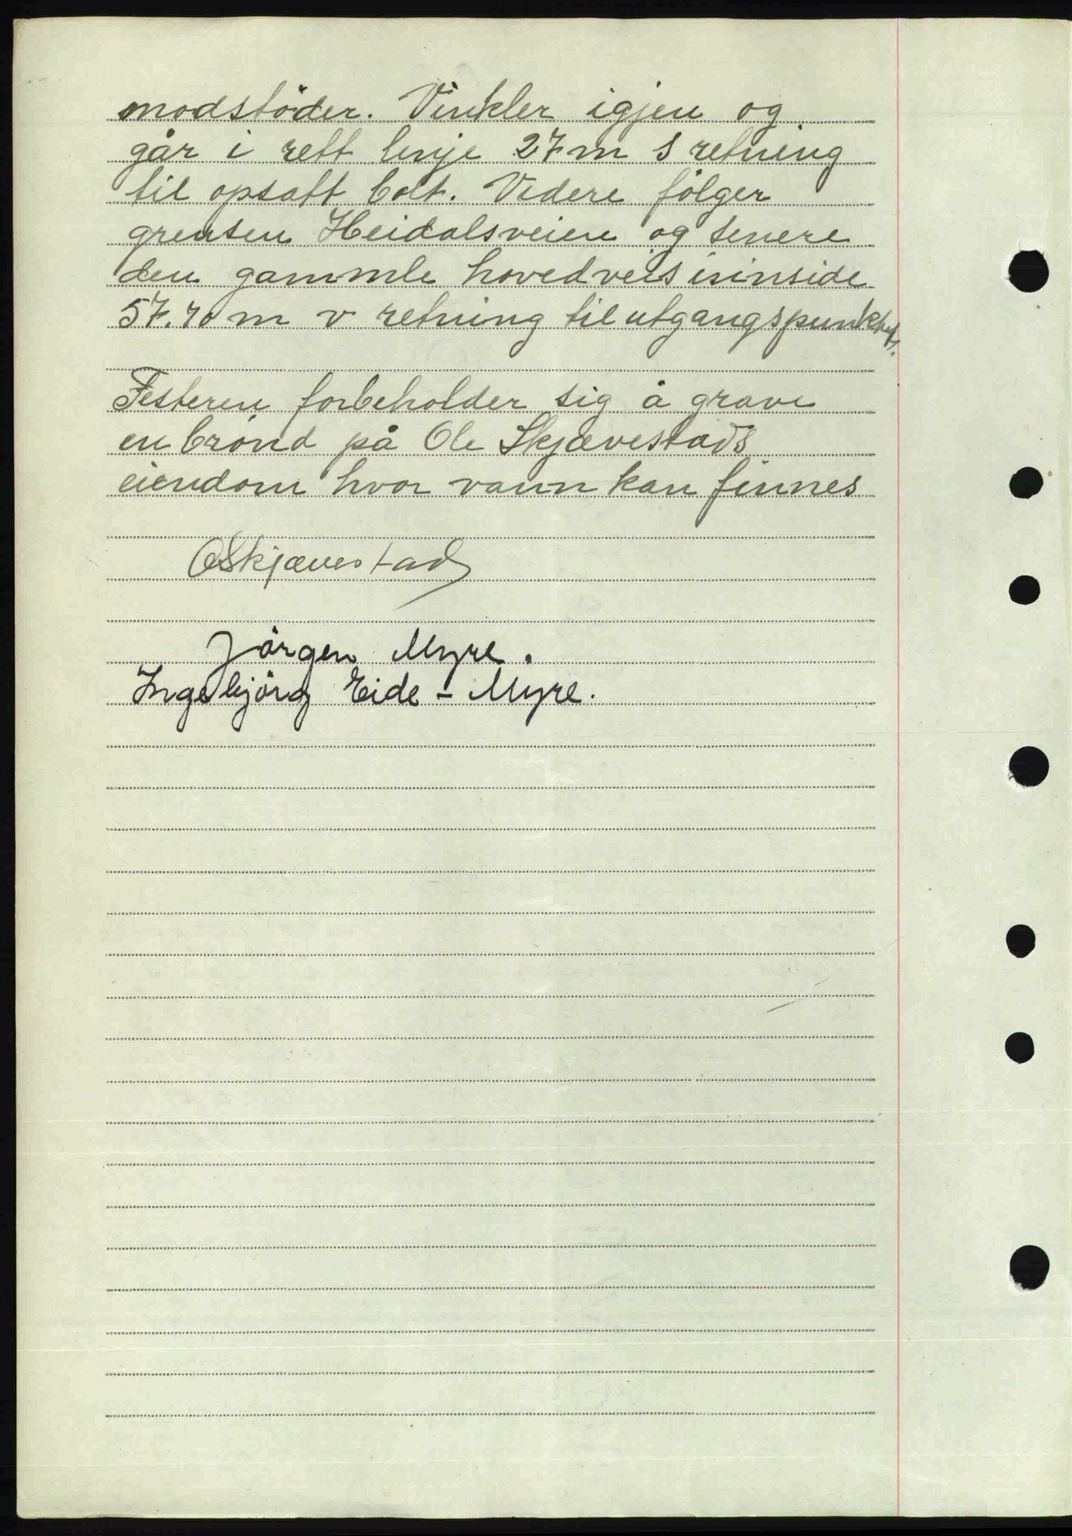 modstöder. Vinkler igjen og
går i rett linje 27 m S retning
til opsatt bolt. Videre følger
grensen Heidalsveien og senere
den gammle hovedveis inside
57.70 m v retning til utgangspunktet.
Festeren forbeholder sig å grave
en brønd på Ole Skjævestads
eiendom hvor vann kan finnes
OSkjævestad
Jörgen Myre.
Ingebjörg Eide - Myre.